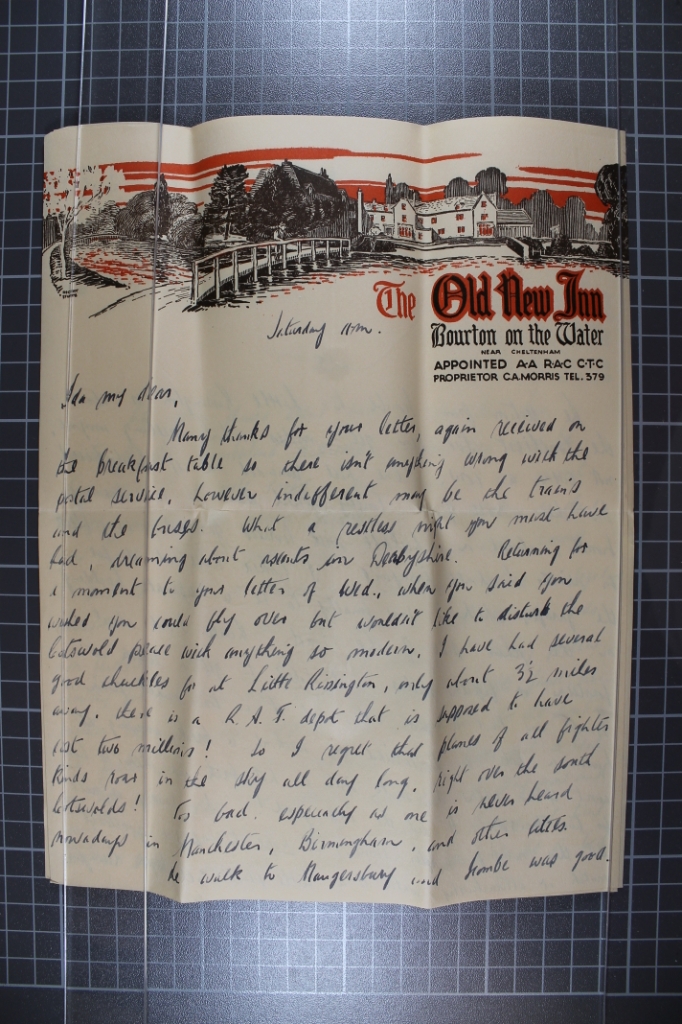 The Old New Inn
Bourton on the Water
NEAR CHELTENHAM
APPOINTED A·A R·A·C C·T·C
PROPRIETOR C.A.MORRIS TEL. 379
Saturday
Ida my dear,
Many thanks for your letter, again received on
the breakfast table so there isn't anything wrong with the
postal service, however indifferent may be the trains
and the buses. What a restless night you must have
had, dreaming about ascents in Derbyshire. Returning for
a moment to your letter of Wed., when you said you
wished you could fly over but wouldn't like to disturb the
Cotswold peace with anything so modern, I have had several
good chuckles for at Little Rissington, only about 3½ miles
away, there is a R.A.F. depot that is supposed to have
cost two millions! So I regret that planes of all fighter
kinds roar in the sky all day long, right over the south
Cotswolds! Too bad. especially as one is never heard
nowadays in Manchester, Birmingham, and other cities.
The walk to Maugersbury and was good.